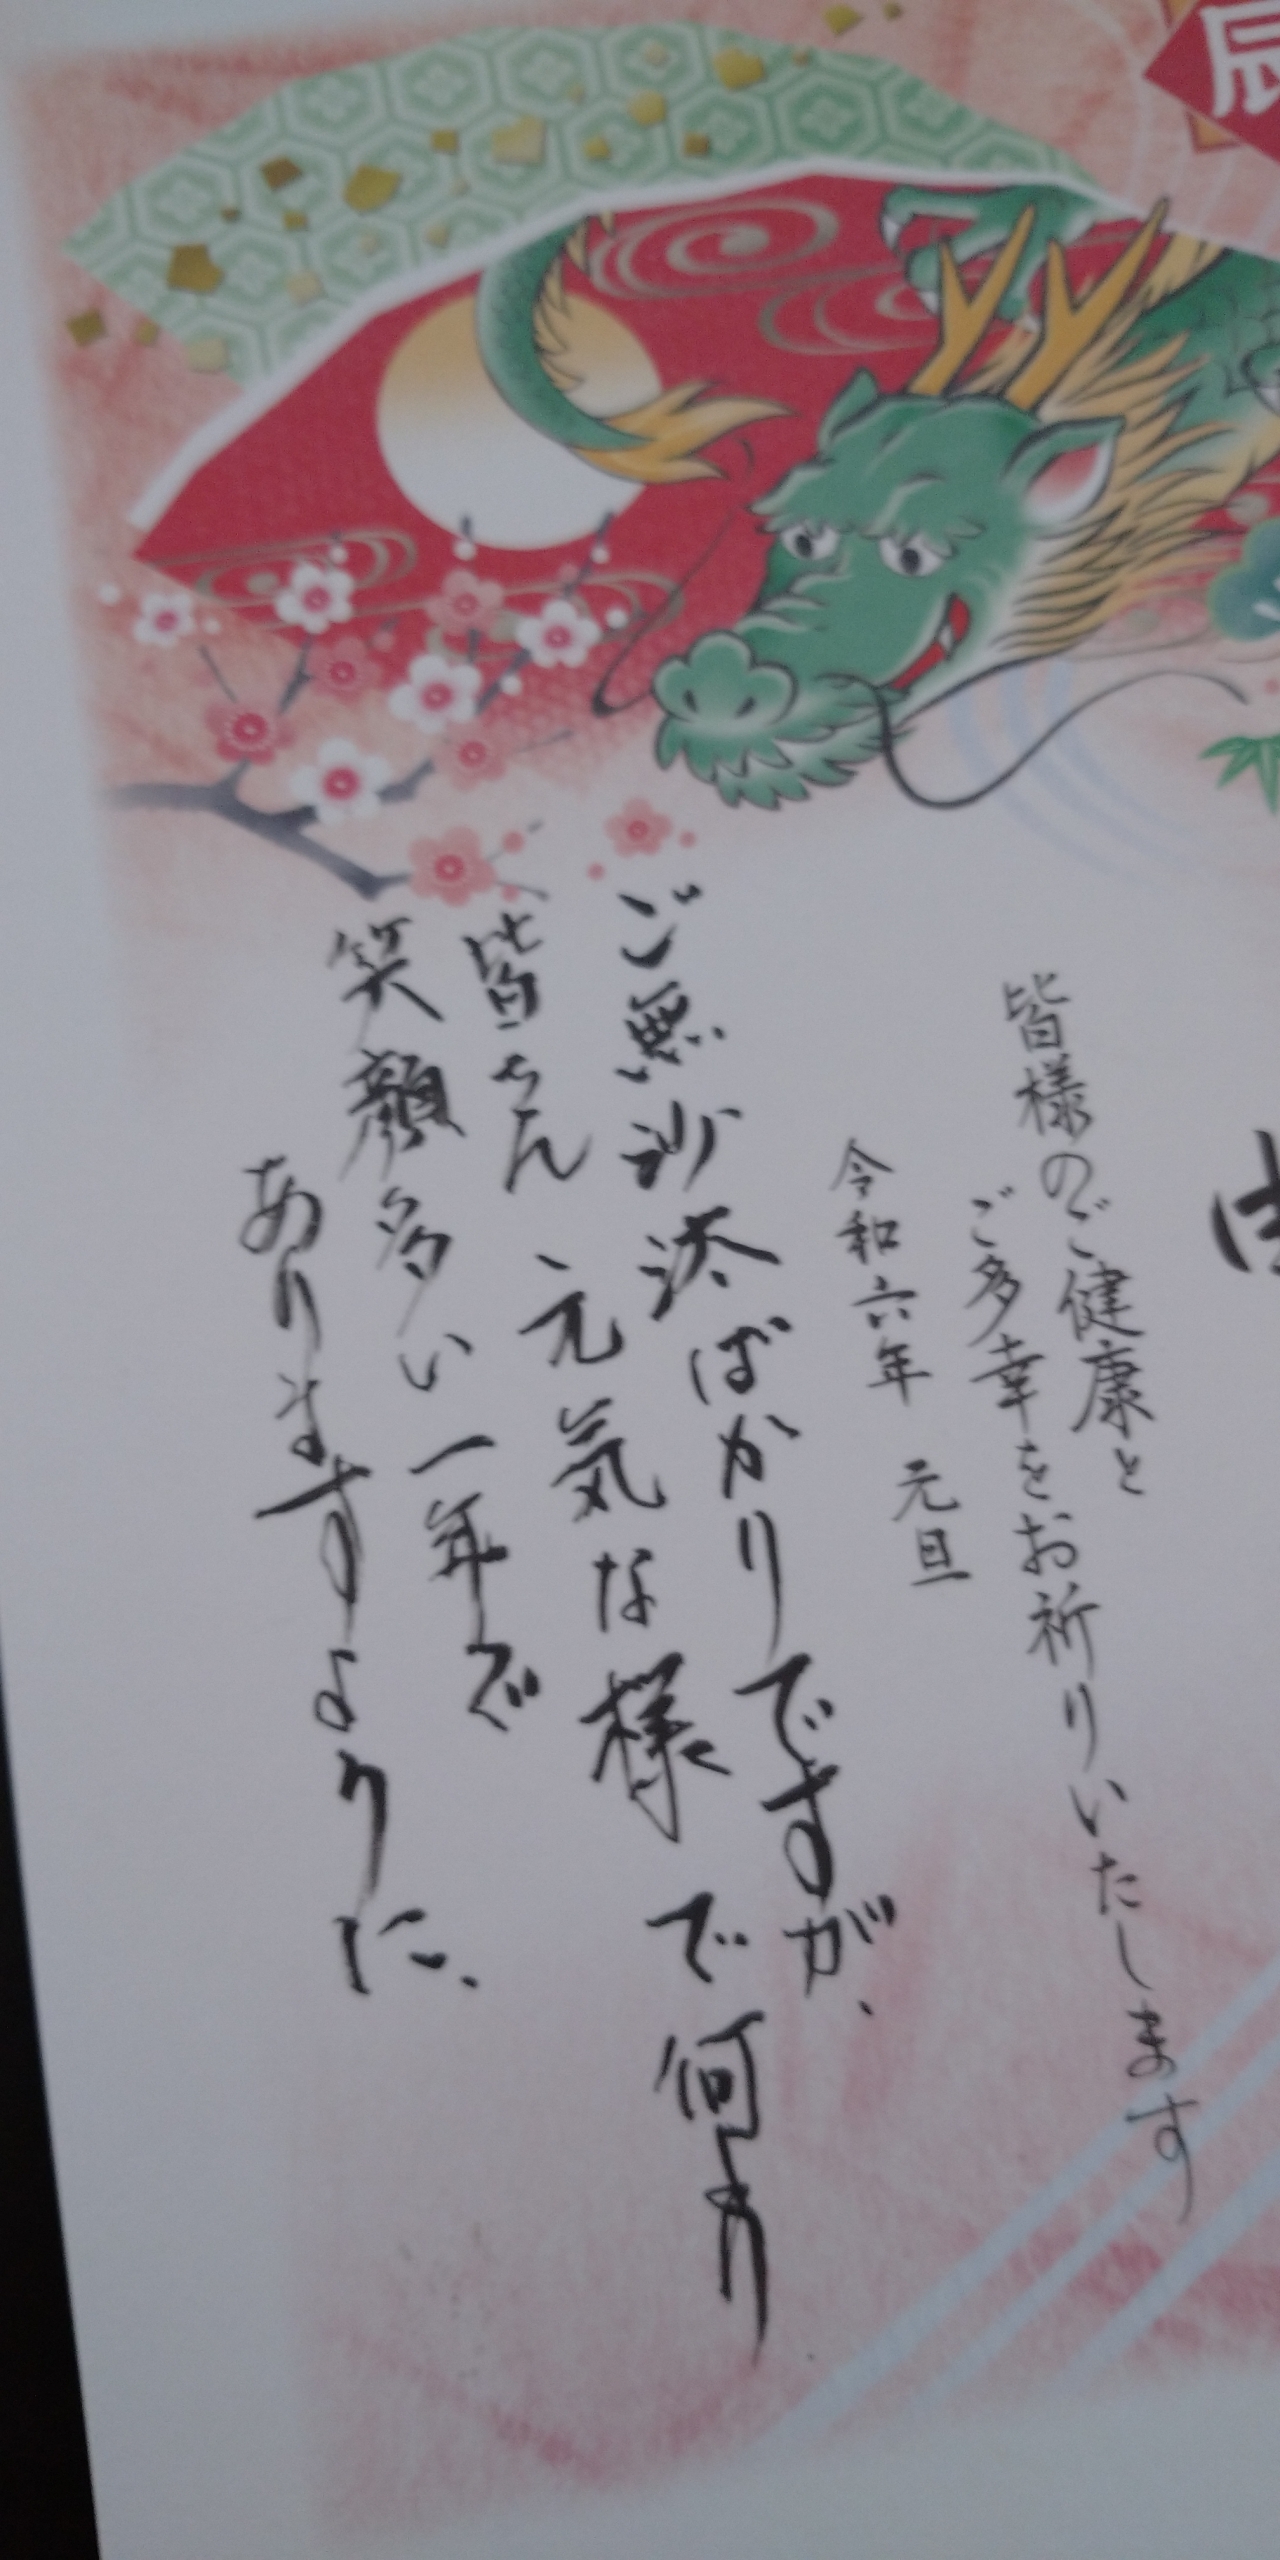 辰
皆様のご健康と
ご多幸をお祈りいたします
令和六年 元旦
ご無沙汰ばかりですが、
皆さん、元気な様で何より
笑顔多い一年で
ありますように、